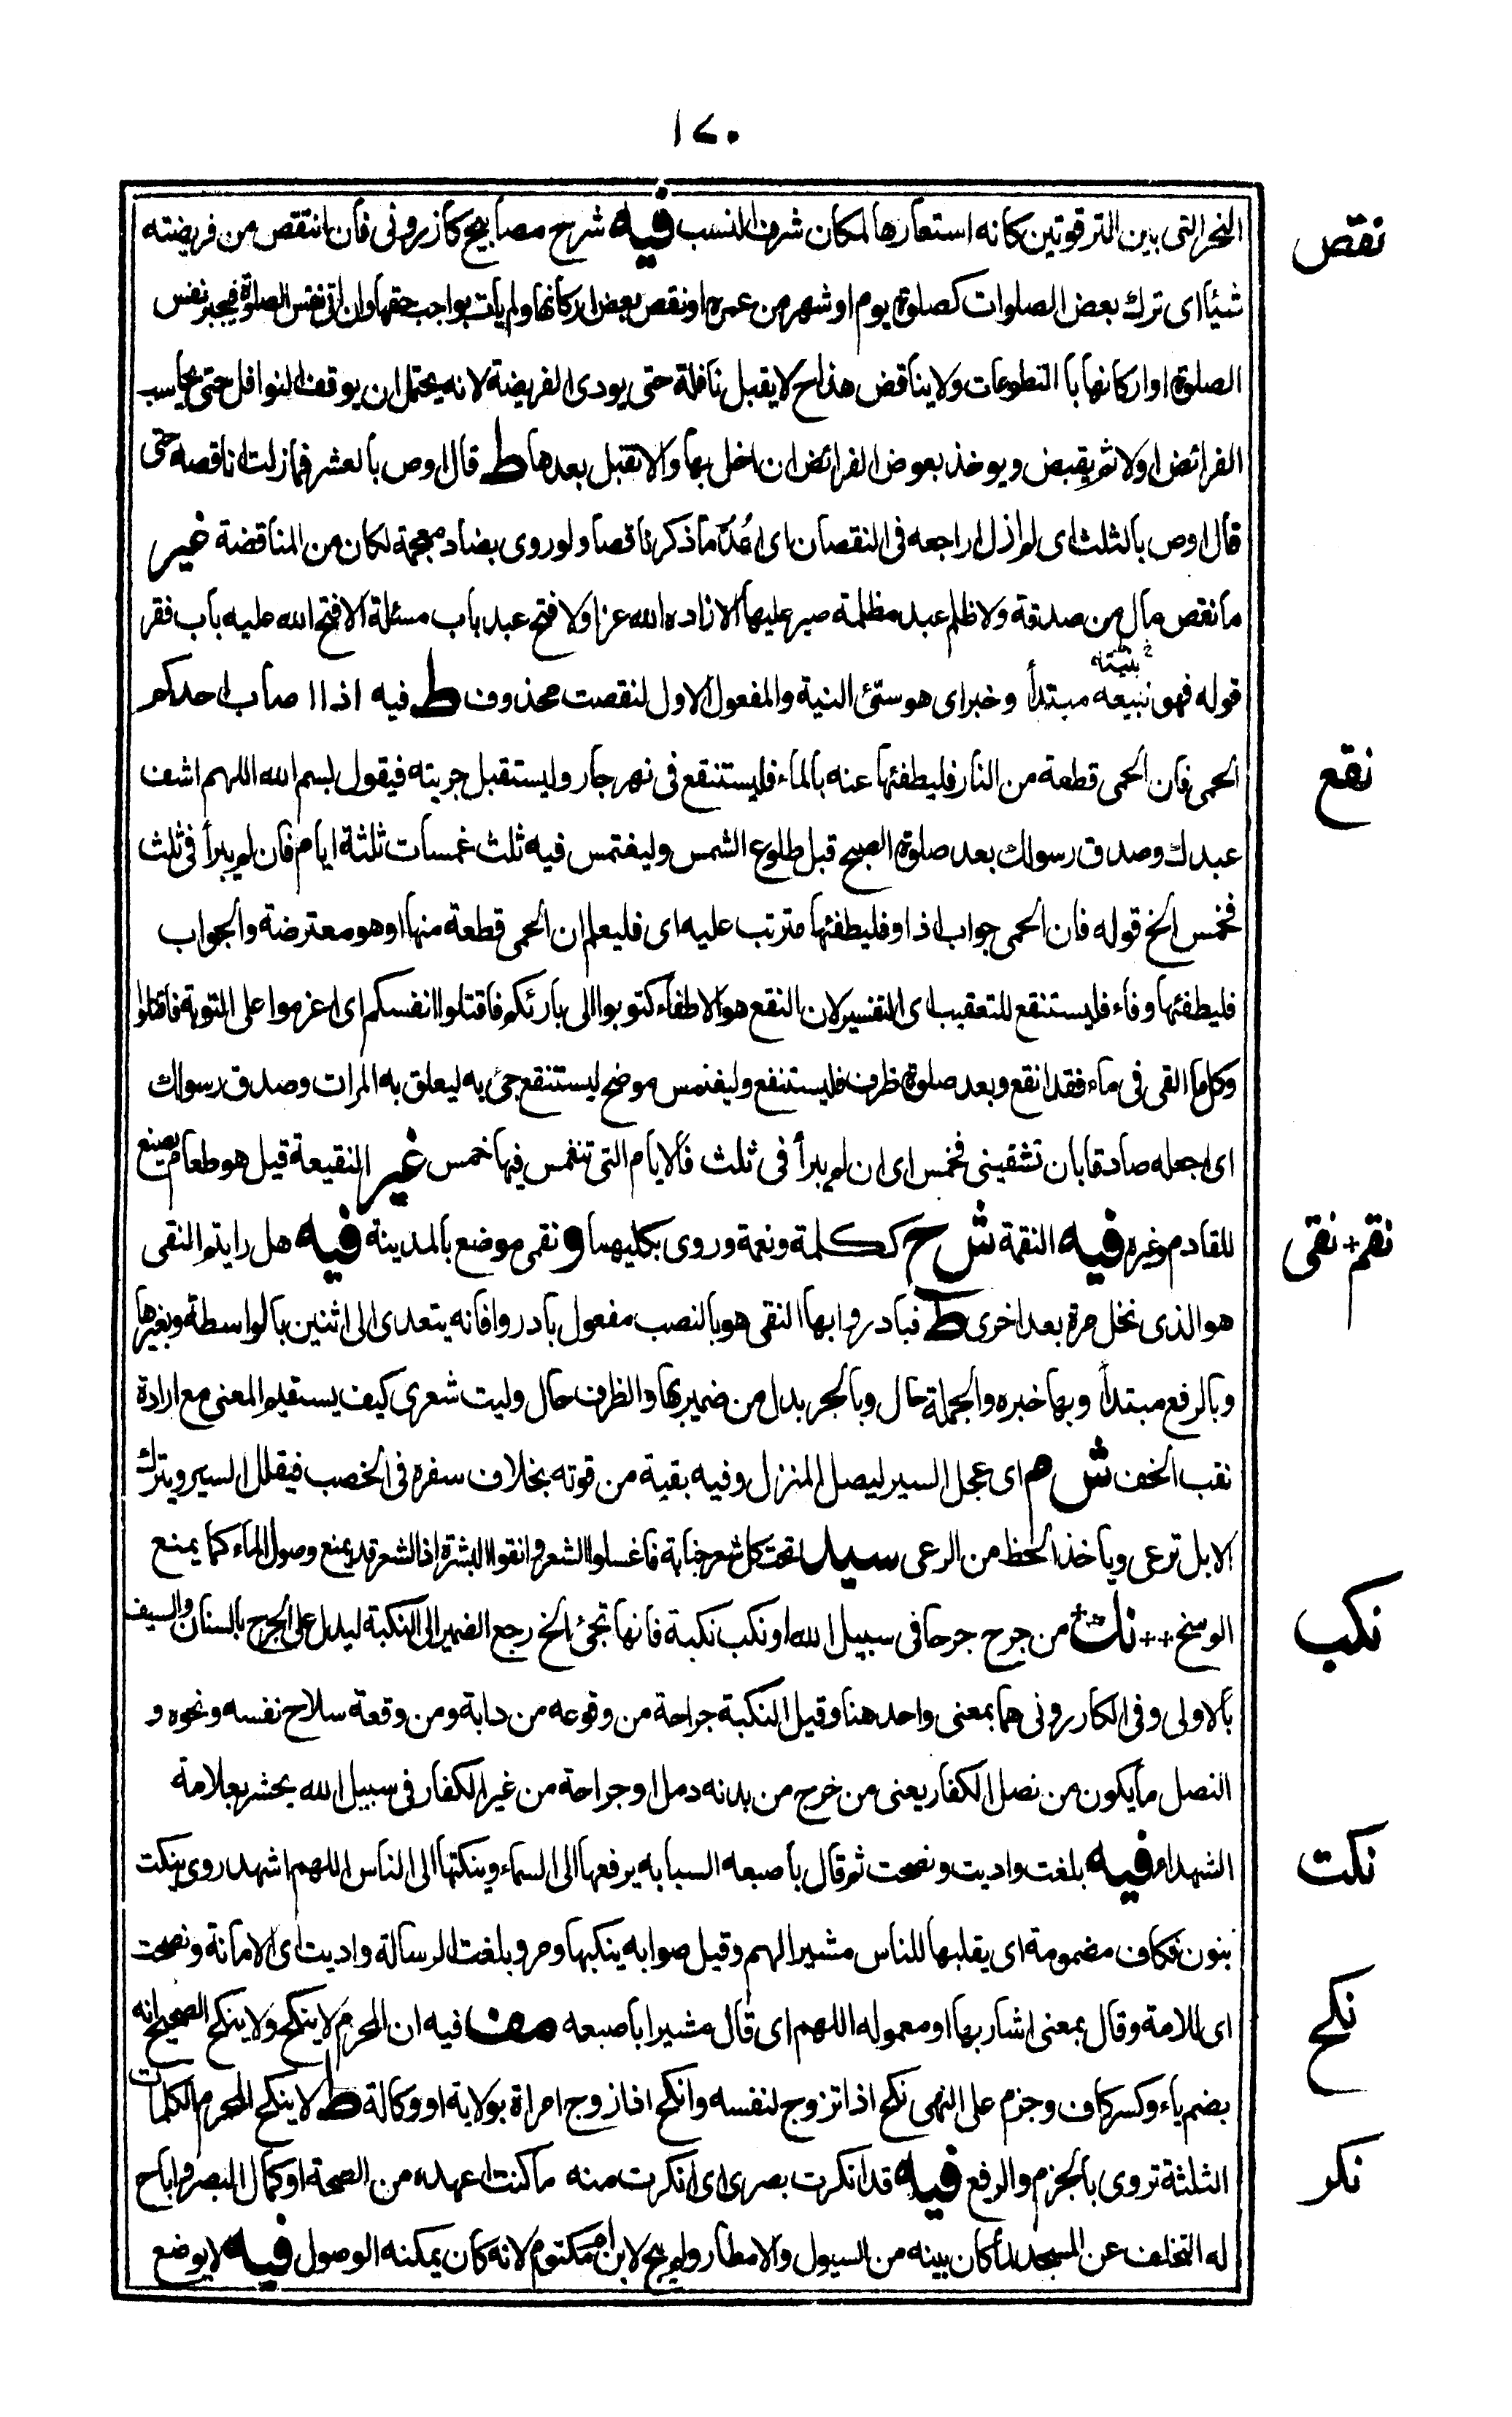 ١٧٠
النحر التى بين الترقوتين كانه استعارها لمكان شرف النسب فيه شرح مصابيح كازرونى فان انتقص من فريضته
نقص
شيئا اى ترك بعض الصلوات كصلوة يوم او شهر من عمره او نقص بعض اركانها ولم يات بواجب حقها وان اتى نفس الصلوة فيجبر نفس
الصلوة او اركانها با التطوعات ولا يناقض هذا ح لا يقبل نافلة حتى يودى الفريضة لانه يحتمل ان يوقف النوافل حتى يحاسب
الفرائض اولا ثم يقبض ويوخذ بعوض الفرائض ان اخل بها والا تقبل بعدها ط قال اوص بالعشر فما زلت اناقصه حتى
قال اوص بالثلث اى لم ازل اراجعه فى النقصان اى اعُدّ ما ذكر ناقصا ولو روى بضاد معجمة لكان من المناقضة غير
ما نقص مال من صدقة ولا ظلم عبد مظلمة صبر عليها الا زاده الله عزا ولا فتح عبد باب مسئلة الا فتح الله عليه باب فقر
قوله فهو نبيعه مبتدأ وخبر اى هو ستئ النية والمفعول الاول لنقصت محذوف ط فيه اذا اصاب احدكم
بنيته
الحمى فان الحمى قطعة من النار فليطفئها عنه بالماء فليستنقع فى نهر جار وليستقبل جريته فيقول بسم الله اللهم اشف
نقع
عبدك وصدق رسولك بعد صلوة الصبح قبل طلوع الشمس وليغتمس فيه ثلث غمسات ثلثة ايام فان لم يبرأ فى ثلث
فخمس الخ قوله فان الحمى جواب اذا وفليطفئها مترتب عليه اى فليعلم ان الحمى قطعة منها او هو معترضة والجواب
فليطفئها وفاء فليستنقع للتعقيب اى التفسير لان النقع هو الاطفاء كتوبوا الى بارئكم فاقتلوا انفسكم اى اعزموا على التوبة فاقتلوا
وكل ما القى فى ماء فقد انقع وبعد صلوة ظرف فليستنقع وليغتمس موضح ليستنقع جئ به ليعلق به المرات وصدق رسولك
اى اجعله صادقا بان تشفينى فخمس اى ان لم يبرأ فى ثلث فالايام التى تنغمس فيها خمس غير النقيعة قيل هو طعام يصنع
للقادم وغيره فيه النقمة ش ح ككلمة ونعمة وروى بكليهما و نقمى موضع بالمدينة فيه هل رايتم النقى
نقم + نقى
هو الذى نخل مرة بعد اخرى ط فبادروا بها النقى هو بالنصب مفعول بادروا فانه يتعدى الى اثنين بالواسطة وبغيرها
وبالرفع مبتدأ وبها خبره والجملة حال وبالجر بدل من ضمير بها والظرف حال وليت شعرى كيف يستقيم المعنى مع ارادة
نقب الخف ش م اى عجل السير ليصل المنزل وفيه بقية من قوته بخلاف سفره فى الخصب فيقلل السير ويترك
الابل ترعى وياخذ الحظ من الرعى سيد تحت كل شعر جنابة فاغسلوا الشعر وانقوا البشرة اذ الشعر قد يمنع وصول الماء كما يمنع
الوسخ ++ نك من جرح جرحا فى سبيل الله او نكب نكبة فانها تجئ الخ رجع الضمير الى النكبة ليدل على الجرح بالسنان والسيف
نكب
بالاولى وفى الكازرونى هما بمعنى واحد هنا وقيل النكبة جراحة من وقوعه من دابة ومن وقعة سلاح نفسه ونحوه و
النصل ما يكون من نصل الكفار يعنى من خرج من بدنه دمل او جراحة من غير الكفار فى سبيل الله يحشر بعلامة
الشهداء فيه بلغت واديت ونصحت ثم قال باصبعه السبابه يرفعها الى السماء وينكتها الى الناس اللهم اشهد روى ينكت
نكت
بنون فكاف مضمومة اى يقلبها للناس مشيرا لهم وقيل صوابه ينكبها ومر وبلغت الرسالة واديت اى الامانة ونصحت
اى للامة وقال بمعنى اشار بها او معموله اللهم اى قال مشيرا باصبعه مف فيه ان المحرم لا ينكح ولا ينكح الصحيح انه
نكح
بضم ياء وكسر كاف وجزم على النهى نكح اذا تزوج لنفسه وانكح اذا زوج امراة بولاية او وكالة ط لا ينكح المحرم الكلمات
الثلثة تروى بالجزم والرفع فيه قد انكرت بصرى اى انكرت منه ما كنت اعهده من الصحة او كمال البصر واباح
نكر
له التخلف عن المسجد لما كان بينه من السيول والامطار ولم يبح لابن ام مكتوم لانه كان يمكنه الوصول فيه لا يوضع